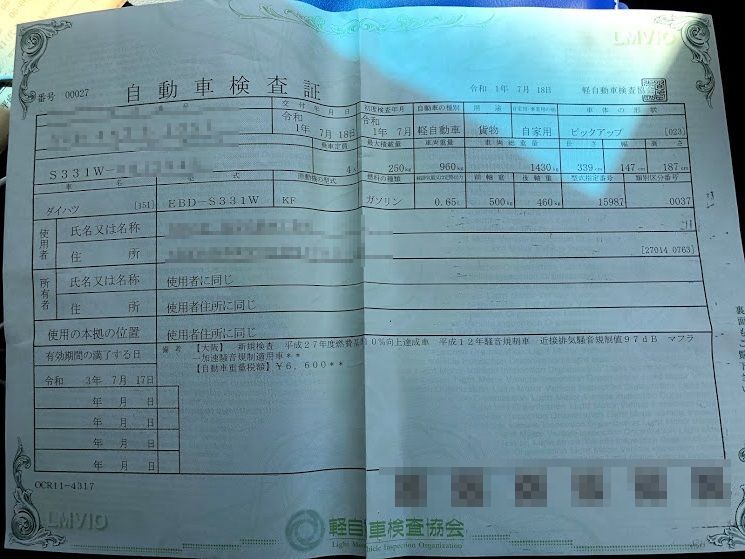 LMVIO
番号 00027
自動車検査証
令和 1年 7月 18日 軽自動車検査協会
交付年月日 初度検査年月 自動車の種別 用途 自家用・事業用の別 車体の形状
令和 1年 7月18日 令和 1年 7月 軽自動車 貨物 自家用 ピックアップ [023]
乗車定員 最大積載量 車両重量 車両総重量 長さ 幅 高さ
S331W- 4人 250kg 960kg 1430kg 339cm 147cm 187cm
車名 型式 原動機の型式 燃料の種類 前軸重 後軸重 型式指定番号 類別区分番号
ダイハツ [351] EBD-S331W KF ガソリン 0.65L 500kg 460kg 15987 0037
使用者 氏名又は名称
住所 [27014 0763]
所有者 氏名又は名称 使用者に同じ
住所 使用者住所に同じ
使用の本拠の位置 使用者住所に同じ
有効期間の満了する日 備考 【大阪】 新規検査 平成27年度燃費基準10%向上達成車 平成12年騒音規制車 近接排気騒音規制値97dB マフラ
ー加速騒音規制適用車**
【自動車重量税額】¥6,600**
令和 3年 7月 17日
年 月 日
年 月 日
年 月 日
年 月 日
OCR11-4317
LMVIO
軽自動車検査協会
Light Motor Vehicle Inspection Organization